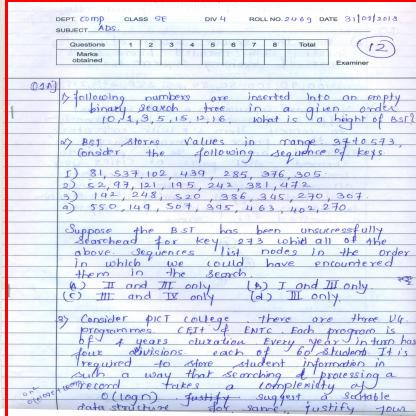 DEPT. Comp CLASS SE DIV 4 ROLL NO. 2469 DATE 31/07/2013
SUBJECT ADS.
Questions 1 2 3 4 5 6 7 8 Total
Marks obtained
12
Examiner
Q1A]
1) following numbers are inserted into an empty
binary search tree in a given order
10, 1, 3, 5, 15, 12, 16. what is a height of BST?
2) BST stores values in range 37 to 573,
consider the following sequence of keys
I) 81, 537, 102, 439, 285, 376, 305.
2) 52, 97, 121, 195, 242, 381, 472
3) 142, 248, 520, 386, 345, 270, 307.
4) 550, 149, 507, 395, 463, 402, 270.
Suppose the BST has been unsuccessfully
searched for key 273 which all of the
above sequences list nodes in the order
in which we could have encountered
them in the search.
(a) II and III only (b) I and III only
(c) III and IV only (d) III only.
3) Consider PICT college there are three UG
programmes CE IT & ENTC. Each program is
of 4 years duration Every year inturn has
four divisions each of 60 students It is
required to store student information in
such a way that searching & processing a
record takes a complexity of
O(log n) suggest a suitable
data structure for same justify your